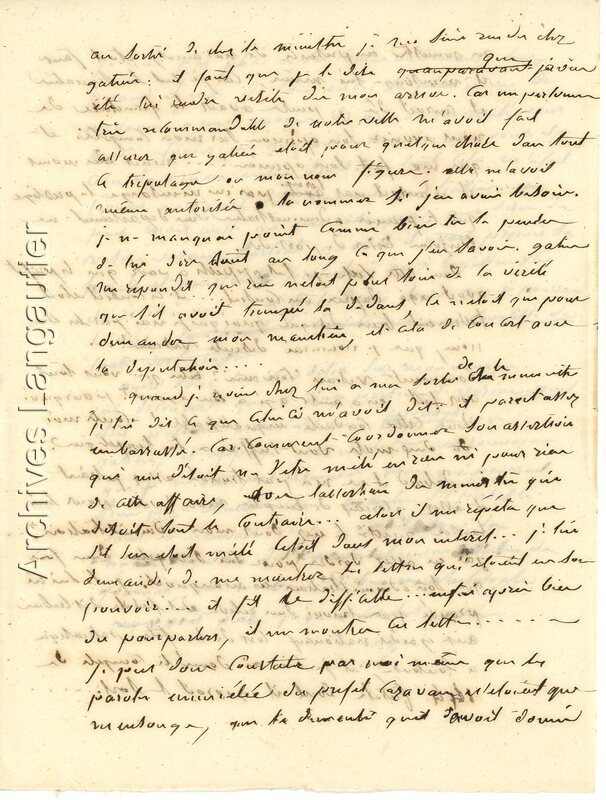 au sortir de chez le ministre je me suis rendu chez
gatien: il faut que je te dise qu'auparavant que j'avois
été lui rendre visite dès mon arrivée. Car une personne
très recommandable de notre ville m'avoit fait
assurer que gatien etoit pour quelque chose dans tout
ce tripotage ou mon nom figure. elle m'avoit
même autorisée a la nommer si j'en avois besoin.
je ne manquai point comme bien tu le penses
de lui dire tout au long ce que j'en savois. gatien
me répondit que rien n'etoit plus loin de la verité
que s'il avoit trempé la dedans, ce n'etoit que pour
demander mon maintien, et cela de concert avec
la députation....
quand je revins chez lui a ma sortie de chez le ministre
je lui dis ce que celui ci m'avoit dit. il parut assez
embarrassé. Car comment coordonner son assertion
qui me disoit ne s'etre mêlé en rien ni pour rien
de cette affaire, avec l'assertion du ministre qui
disoit tout le contraire... alors il me répéta que
s'il s'en etoit mêlé c'etoit dans mon interet... je lui
demandé de me montrer les lettres qui etoient en son
pouvoir... il fit le difficile... enfin après bien
des pourparlers, il me montra ces lettres......
je pus donc constater par moi même que les
paroles du prefet Cazavan n'etoient que
mensonge, que le dementi qu'il avoit donné
Archives Langautier